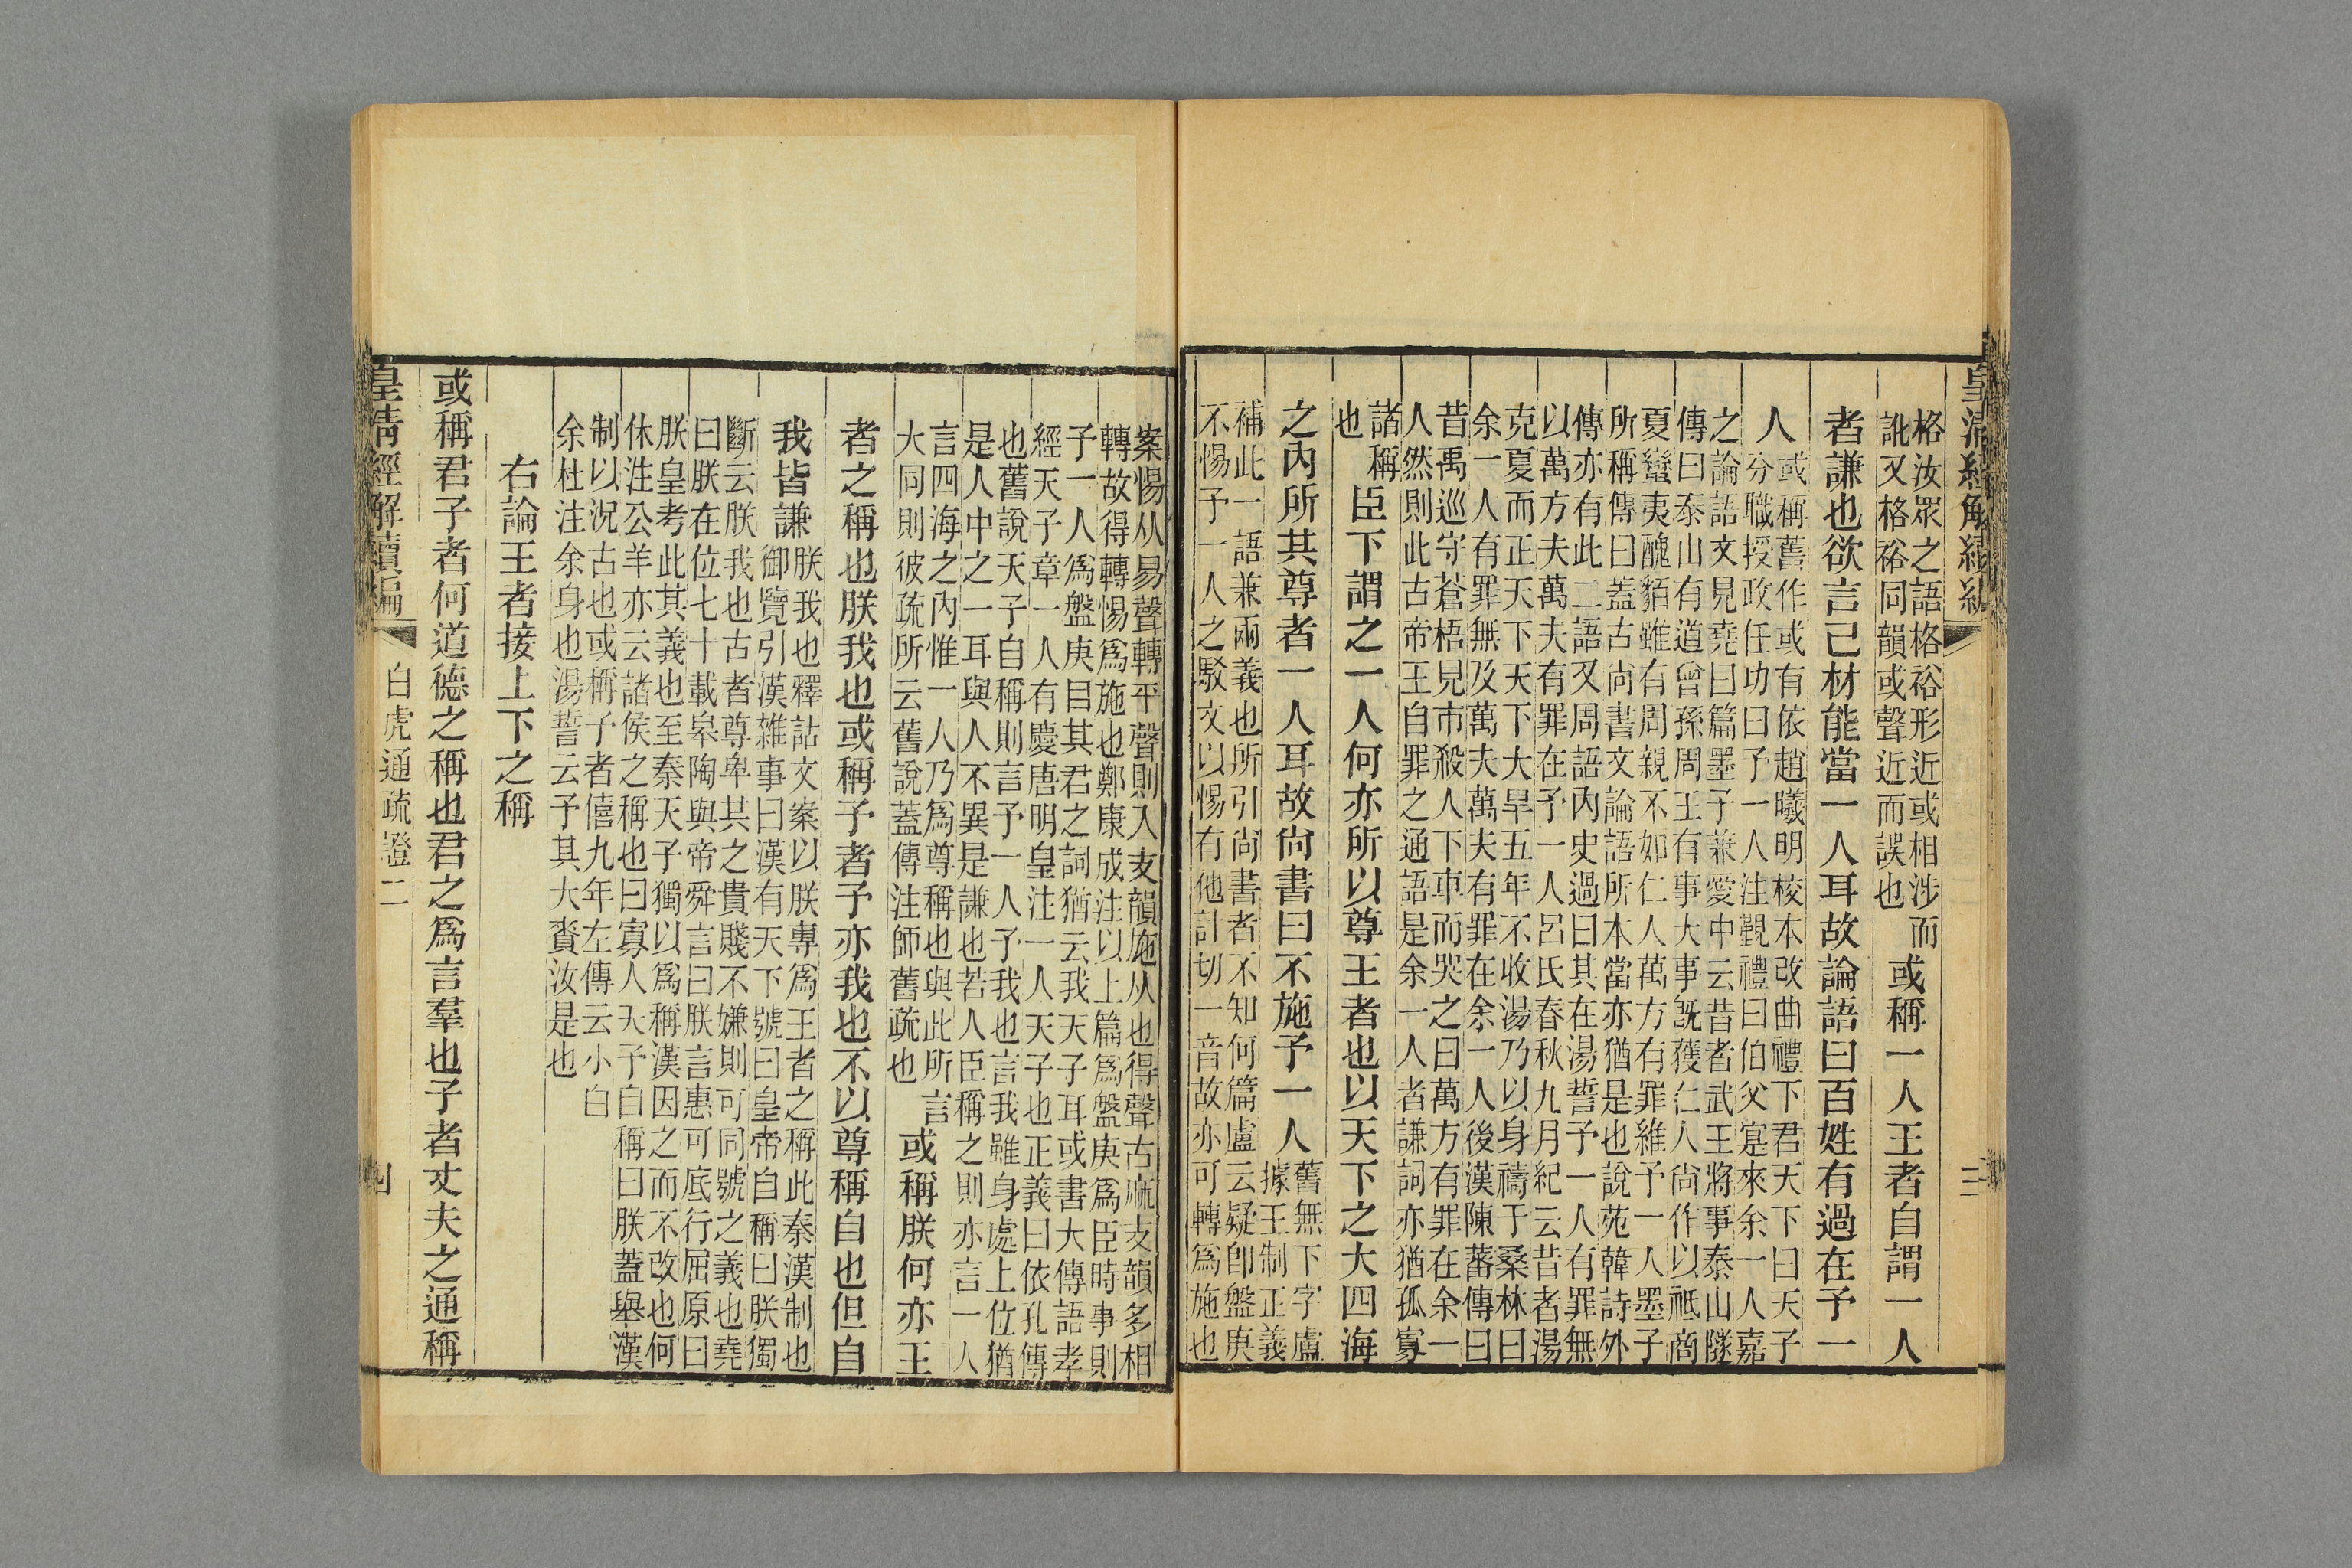 皇清經解續編 三
格汝眾之語格裕形近或相涉而
訛又格裕同韻或聲近而誤也
或稱一人王者自謂一人
者謙也欲言己材能當一人耳故論語曰百姓有過在予一
人
或稱舊作或有依趙曦明校本改曲禮下君天下曰天子
分職授政任功曰予一人注覲禮曰伯父寔來余一人嘉
之論語文見堯曰篇墨子兼愛中云昔者武王將事泰山隧
傳曰泰山有道曾孫周王有事大事既獲仁人尚作以祗商
夏蠻夷醜貊雖有周親不如仁人萬方有罪維予一人墨子
所稱傳曰蓋古尚書文論語所本當亦猶是也說苑韓詩外
傳亦有此二語又周語內史過曰其在湯誓予一人有罪無
以萬方夫萬夫有罪在予一人呂氏春秋九月紀云昔者湯
克夏而正天下天下大旱五年不收湯乃以身禱于桑林曰
余一人有罪無及萬夫萬夫有罪在余一人後漢陳蕃傳曰
昔禹巡守蒼梧見市殺人下車而哭之曰萬方有罪在余一
人然則此古帝王自罪之通語是余一人者謙詞亦猶孤寡
諸稱
也
臣下謂之一人何亦所以尊王者也以天下之大四海
之內所共尊者一人耳故尚書曰不施予一人
舊無下字盧
據王制正義
補此一語兼兩義也所引尚書者不知何篇盧云疑卽盤庚
不惕予一人之駁文以惕有他計切一音故亦可轉爲施也
案惕从易聲轉平聲則入支韻施从也得聲古麻支韻多相
轉故得轉惕爲施也鄭康成注以上篇爲盤庚爲臣時事則
予一人爲盤庚目其君之詞猶云我天子耳或書大傳語孝
經天子章一人有慶唐明皇注一人天子也正義曰依孔傳
也舊說天子自稱則言予一人予我也言我雖身處上位猶
是人中之一耳與人不異是謙也若人臣稱之則亦言一人
言四海之內惟一人乃爲尊稱也與此所言
大同則彼疏所云舊說蓋傳注師舊疏也
或稱朕何亦王
者之稱也朕我也或稱予者予亦我也不以尊稱自也但自
我皆謙
朕我也釋詁文案以朕專爲王者之稱此秦漢制也
御覽引漢雜事曰漢有天下號曰皇帝自稱曰朕獨
斷云朕我也古者尊卑共之貴賤不嫌則可同號之義也堯
曰朕在位七十載皋陶與帝舜言曰朕言惠可底行屈原曰
朕皇考此其義也至秦天子獨以爲稱漢因之而不改也何
休注公羊亦云諸侯之稱也曰寡人天子自稱曰朕蓋舉漢
制以況古也或稱予者僖九年左傳云小白
余杜注余身也湯誓云予其大賚汝是也
右論王者接上下之稱
或稱君子者何道德之稱也君之爲言羣也子者丈夫之通稱
皇清經解續編 白虎通疏證二 四